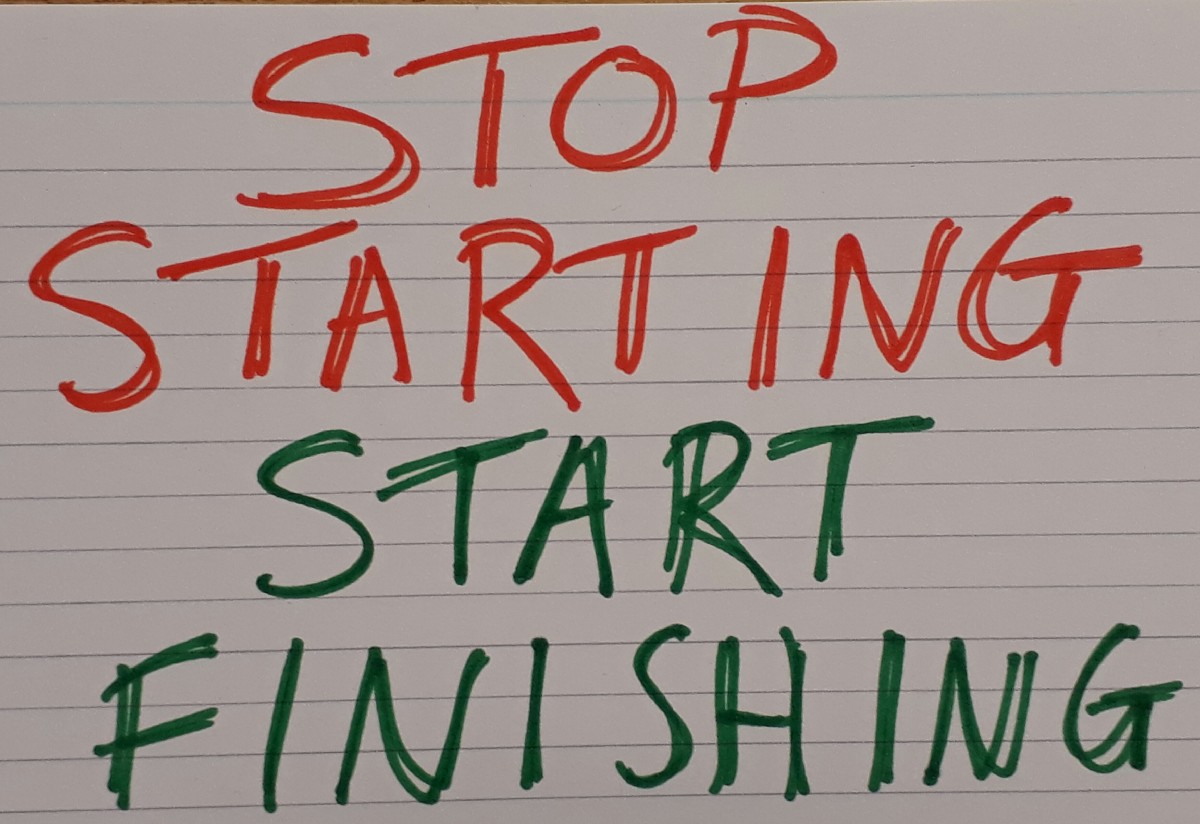 STOP
STARTING
START
FINISHING